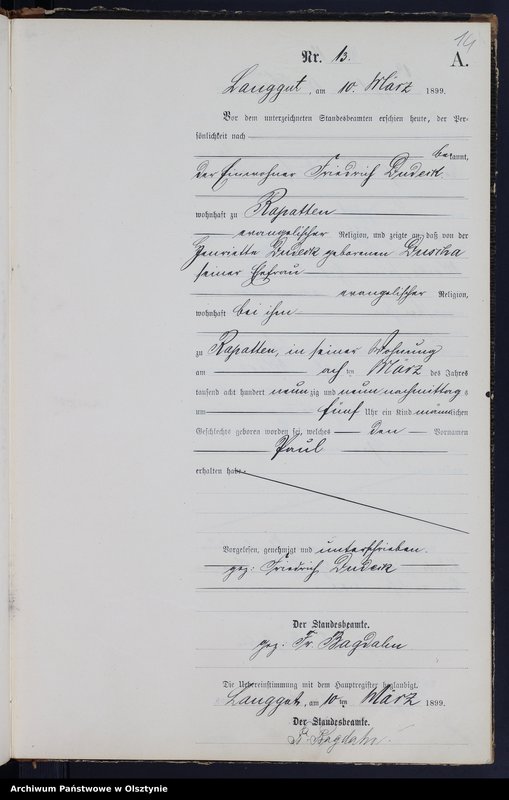 14
Nr. 13.
A.
Langgut, am 10. März 1899.
Vor dem unterzeichneten Standesbeamten erschien heute, der Per-
sönlichkeit nach
bekannt,
der Einwohner Friedrich Dudeck
wohnhaft zu Rapatten
evangelischer Religion, und zeigte an, daß von der
Henriette Dudeck geborenen Duscha
seiner Ehefrau
evangelischer Religion,
wohnhaft bei ihm
zu Rapatten, in seiner Wohnung
am achten März des Jahres
tausend acht hundert neunzig und neun nachmittags
um fünf Uhr ein Kind männlichen
Geschlechts geboren worden sei, welches den Vornamen
Paul
erhalten habe.
Vorgelesen, genehmigt und unterschrieben.
gez: Friedrich Dudeck
Der Standesbeamte.
gez. Fr. Bagdahn
Die Uebereinstimmung mit dem Hauptregister beglaubigt.
Langgut, am 10ten März 1899.
Der Standesbeamte.
Bagdahn
Archiwum Państwowe w Olsztynie